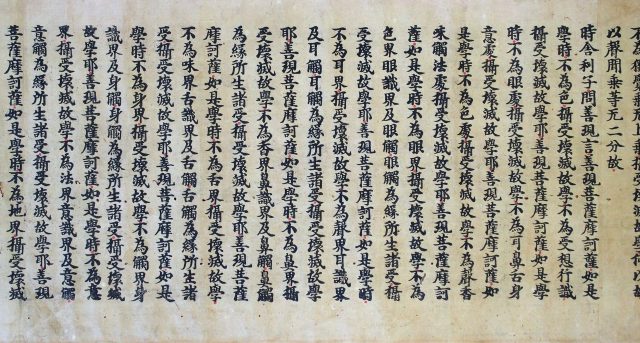 以聲聞乘等无二分故
時舍利子問善現言善現菩薩摩訶薩如是
學時不為色攝受壞滅故學不為受想行識
攝受壞滅故學耶善現菩薩摩訶薩如是學
時不為眼處攝受壞滅故學不為耳鼻舌身
意處攝受壞滅故學耶善現菩薩摩訶薩如
是學時不為色處攝受壞滅故學不為聲香
味觸法處攝受壞滅故學耶善現菩薩摩訶
薩如是學時不為眼界攝受壞滅故學不為
色界眼識界及眼觸眼觸為緣所生諸受攝
受壞滅故學耶善現菩薩摩訶薩如是學時
不為耳界攝受壞滅故學不為聲界耳識界
及耳觸耳觸為緣所生諸受攝受壞滅故學
耶善現菩薩摩訶薩如是學時不為鼻界攝
受壞滅故學不為香界鼻識界及鼻觸鼻觸
為緣所生諸受攝受壞滅故學耶善現菩薩
摩訶薩如是學時不為舌界攝受壞滅故學
不為味界舌識界及舌觸舌觸為緣所生諸
受攝受壞滅故學耶善現菩薩摩訶薩如是
學時不為身界攝受壞滅故學不為觸界身
識界及身觸身觸為緣所生諸受攝受壞滅
故學耶善現菩薩摩訶薩如是學時不為意
界攝受壞滅故學不為法界意識界及意觸
意觸為緣所生諸受攝受壞滅故學耶善現
菩薩摩訶薩如是學時不為地界攝受壞滅